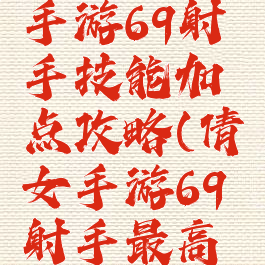 手游69射
手技能加
点攻略(倩
女手游69
射手最高